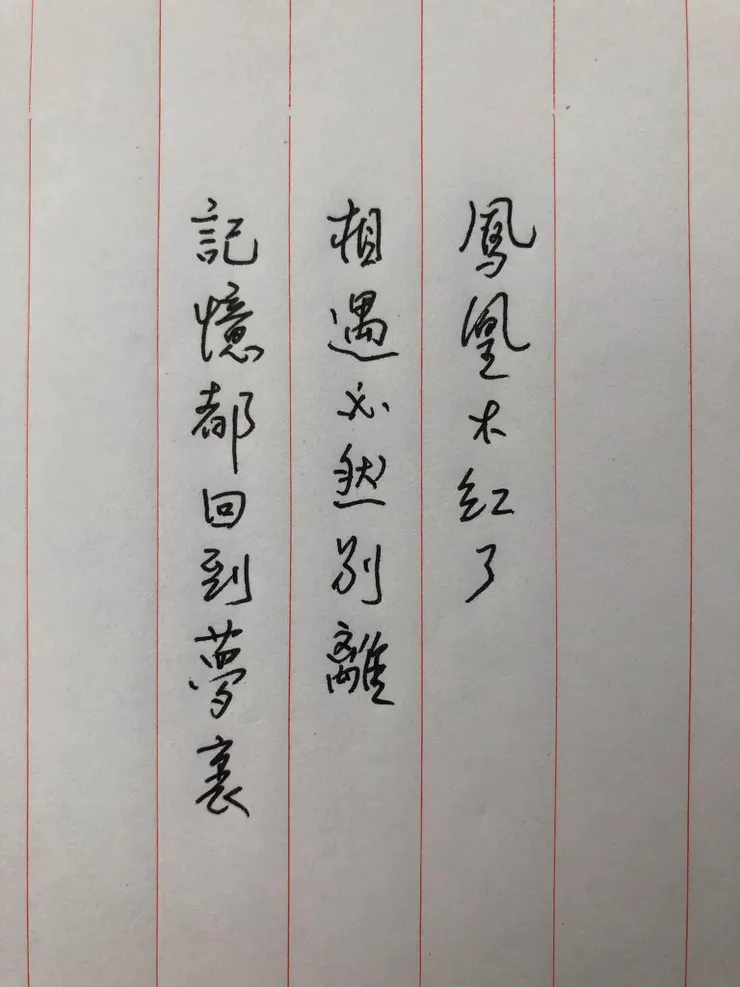 鳳凰木紅了
相遇必然別離
記憶都回到夢裏